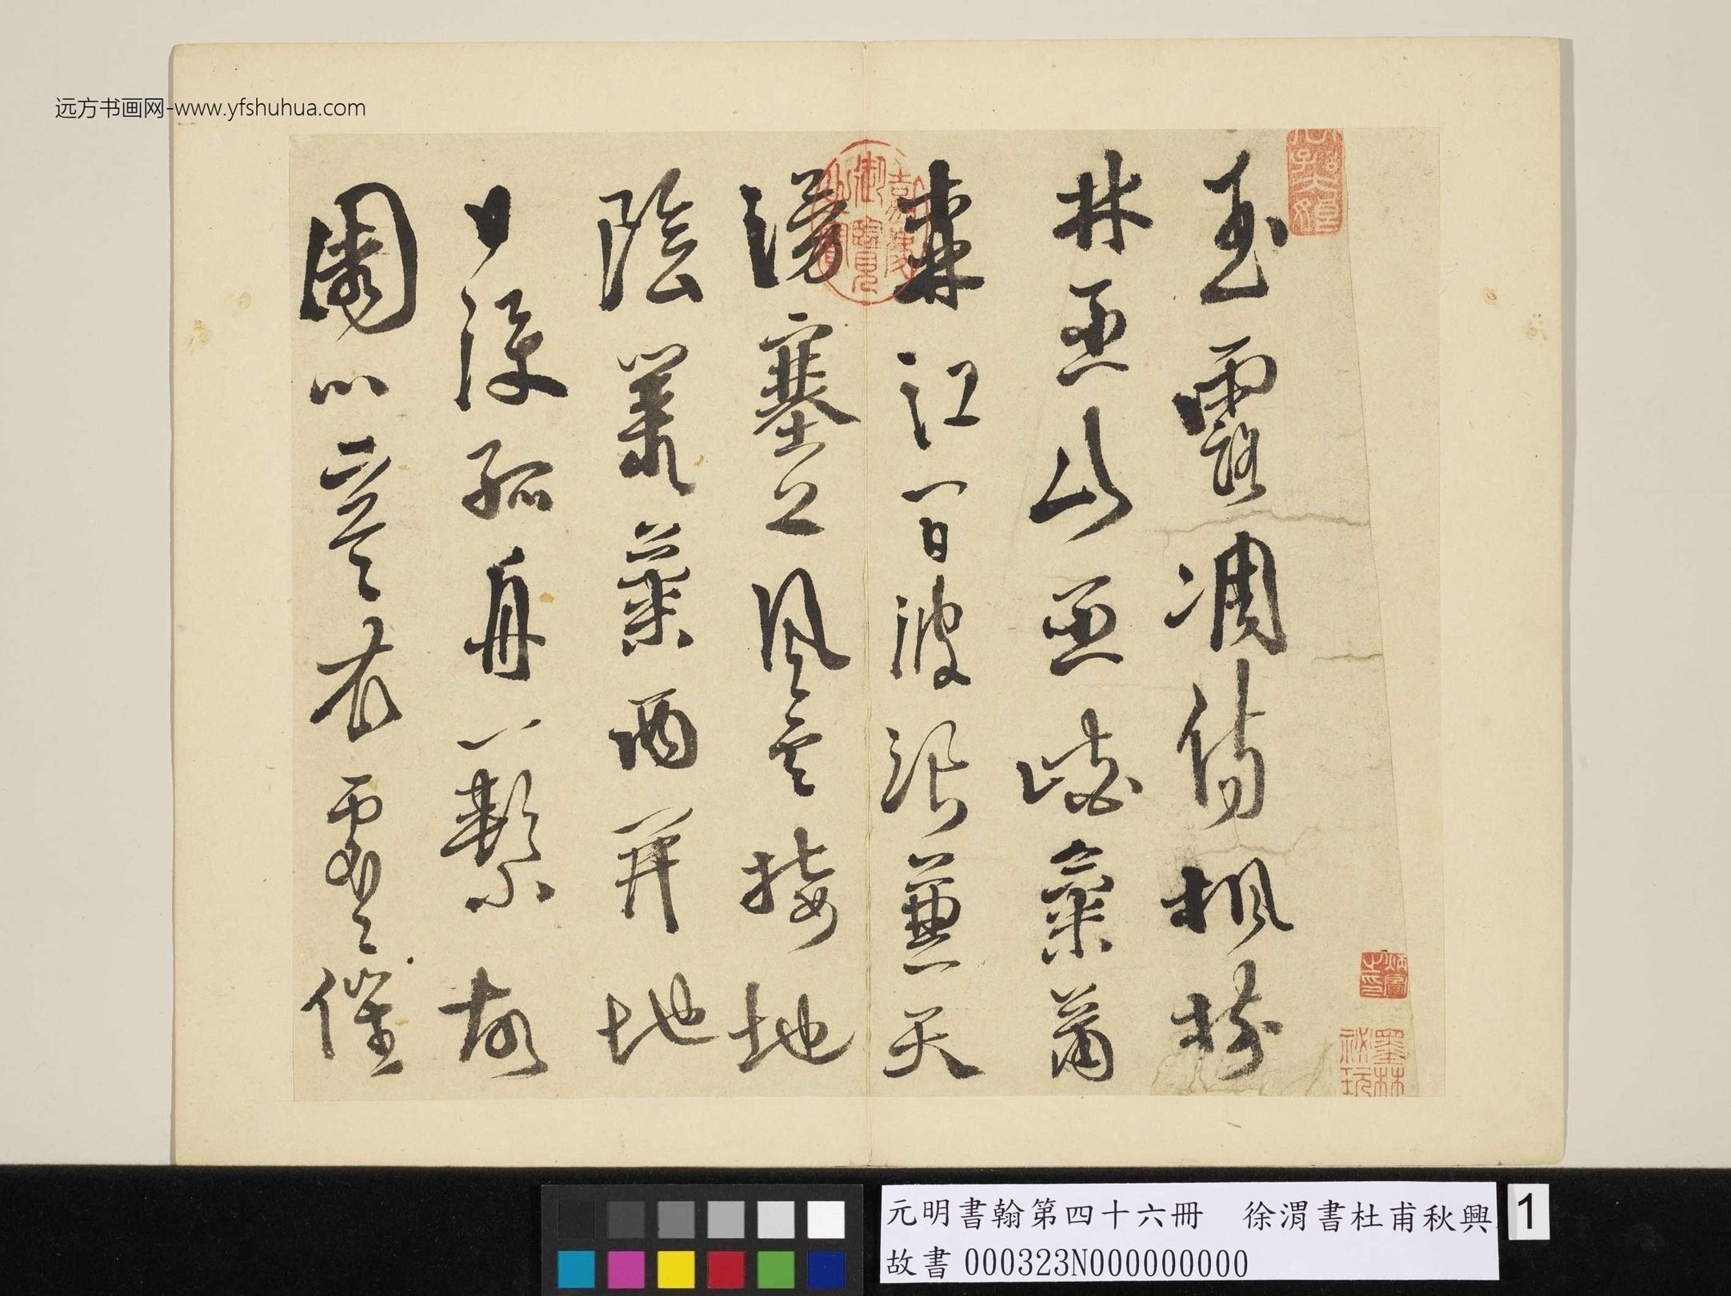 远方书画网-www.yfshuhua.com
玉露凋傷楓樹
林巫山巫峽氣蕭
森江間波浪兼天
湧塞上風雲接地
陰叢菊兩開他
日淚孤舟一繫故
園心寒衣處處催
嘉慶御覽之寶
墨林秘玩
元明書翰第四十六冊 徐渭書杜甫秋興
故書 000323N000000000
1